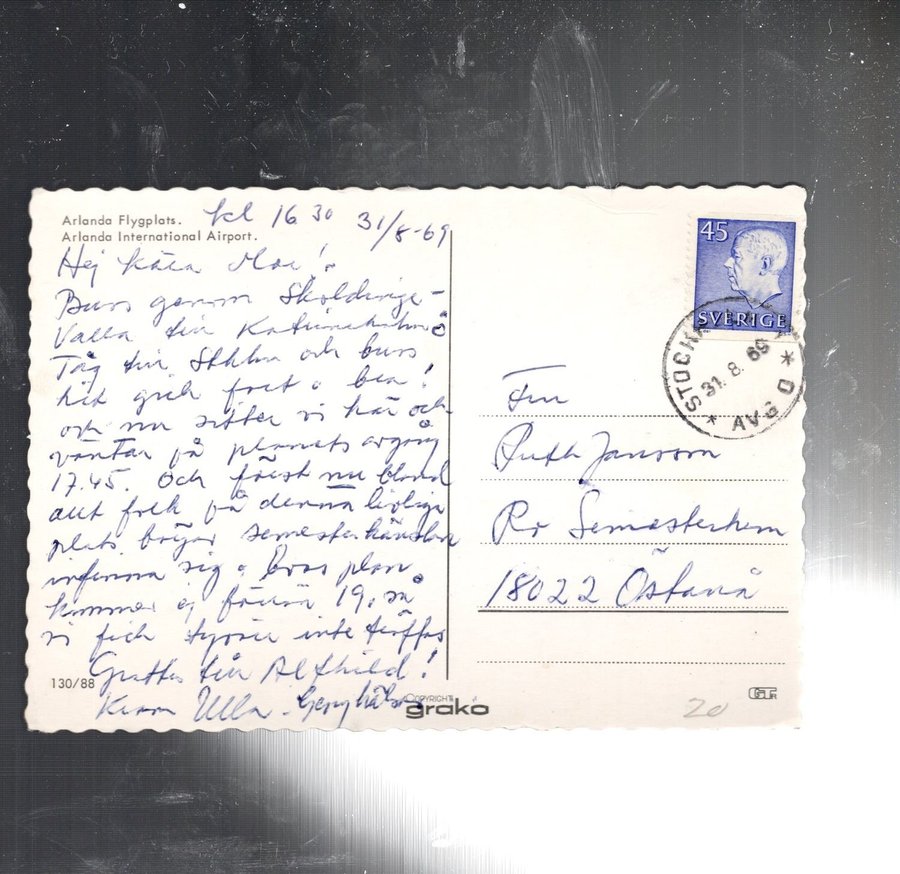 Arlanda Flygplats.
Arlanda International Airport.
kl 16 30 31/8-69
Hej kära Moa!
Buss genom Sköldinge-
Valla till Katrineholm o
Tåg till Sthlm och buss
hit gick fort o bra!
och nu sitter vi här och
väntar på planets avgång
17.45. Och först nu bland
allt folk på denna livliga
plats börjar semesterkänslan
infinna sig o hans plan
kommer ej förrän 19, så
vi fick tyvärr inte träffas
Grattis till Alfhild!
Kram Ulla
130/88
COPYRIGHT
grako
45
SVERIGE
STOCK
31.8.69
* AVG D *
Fru
Ruth Jansson
Rv Semesterhem
18022 Östanå
20